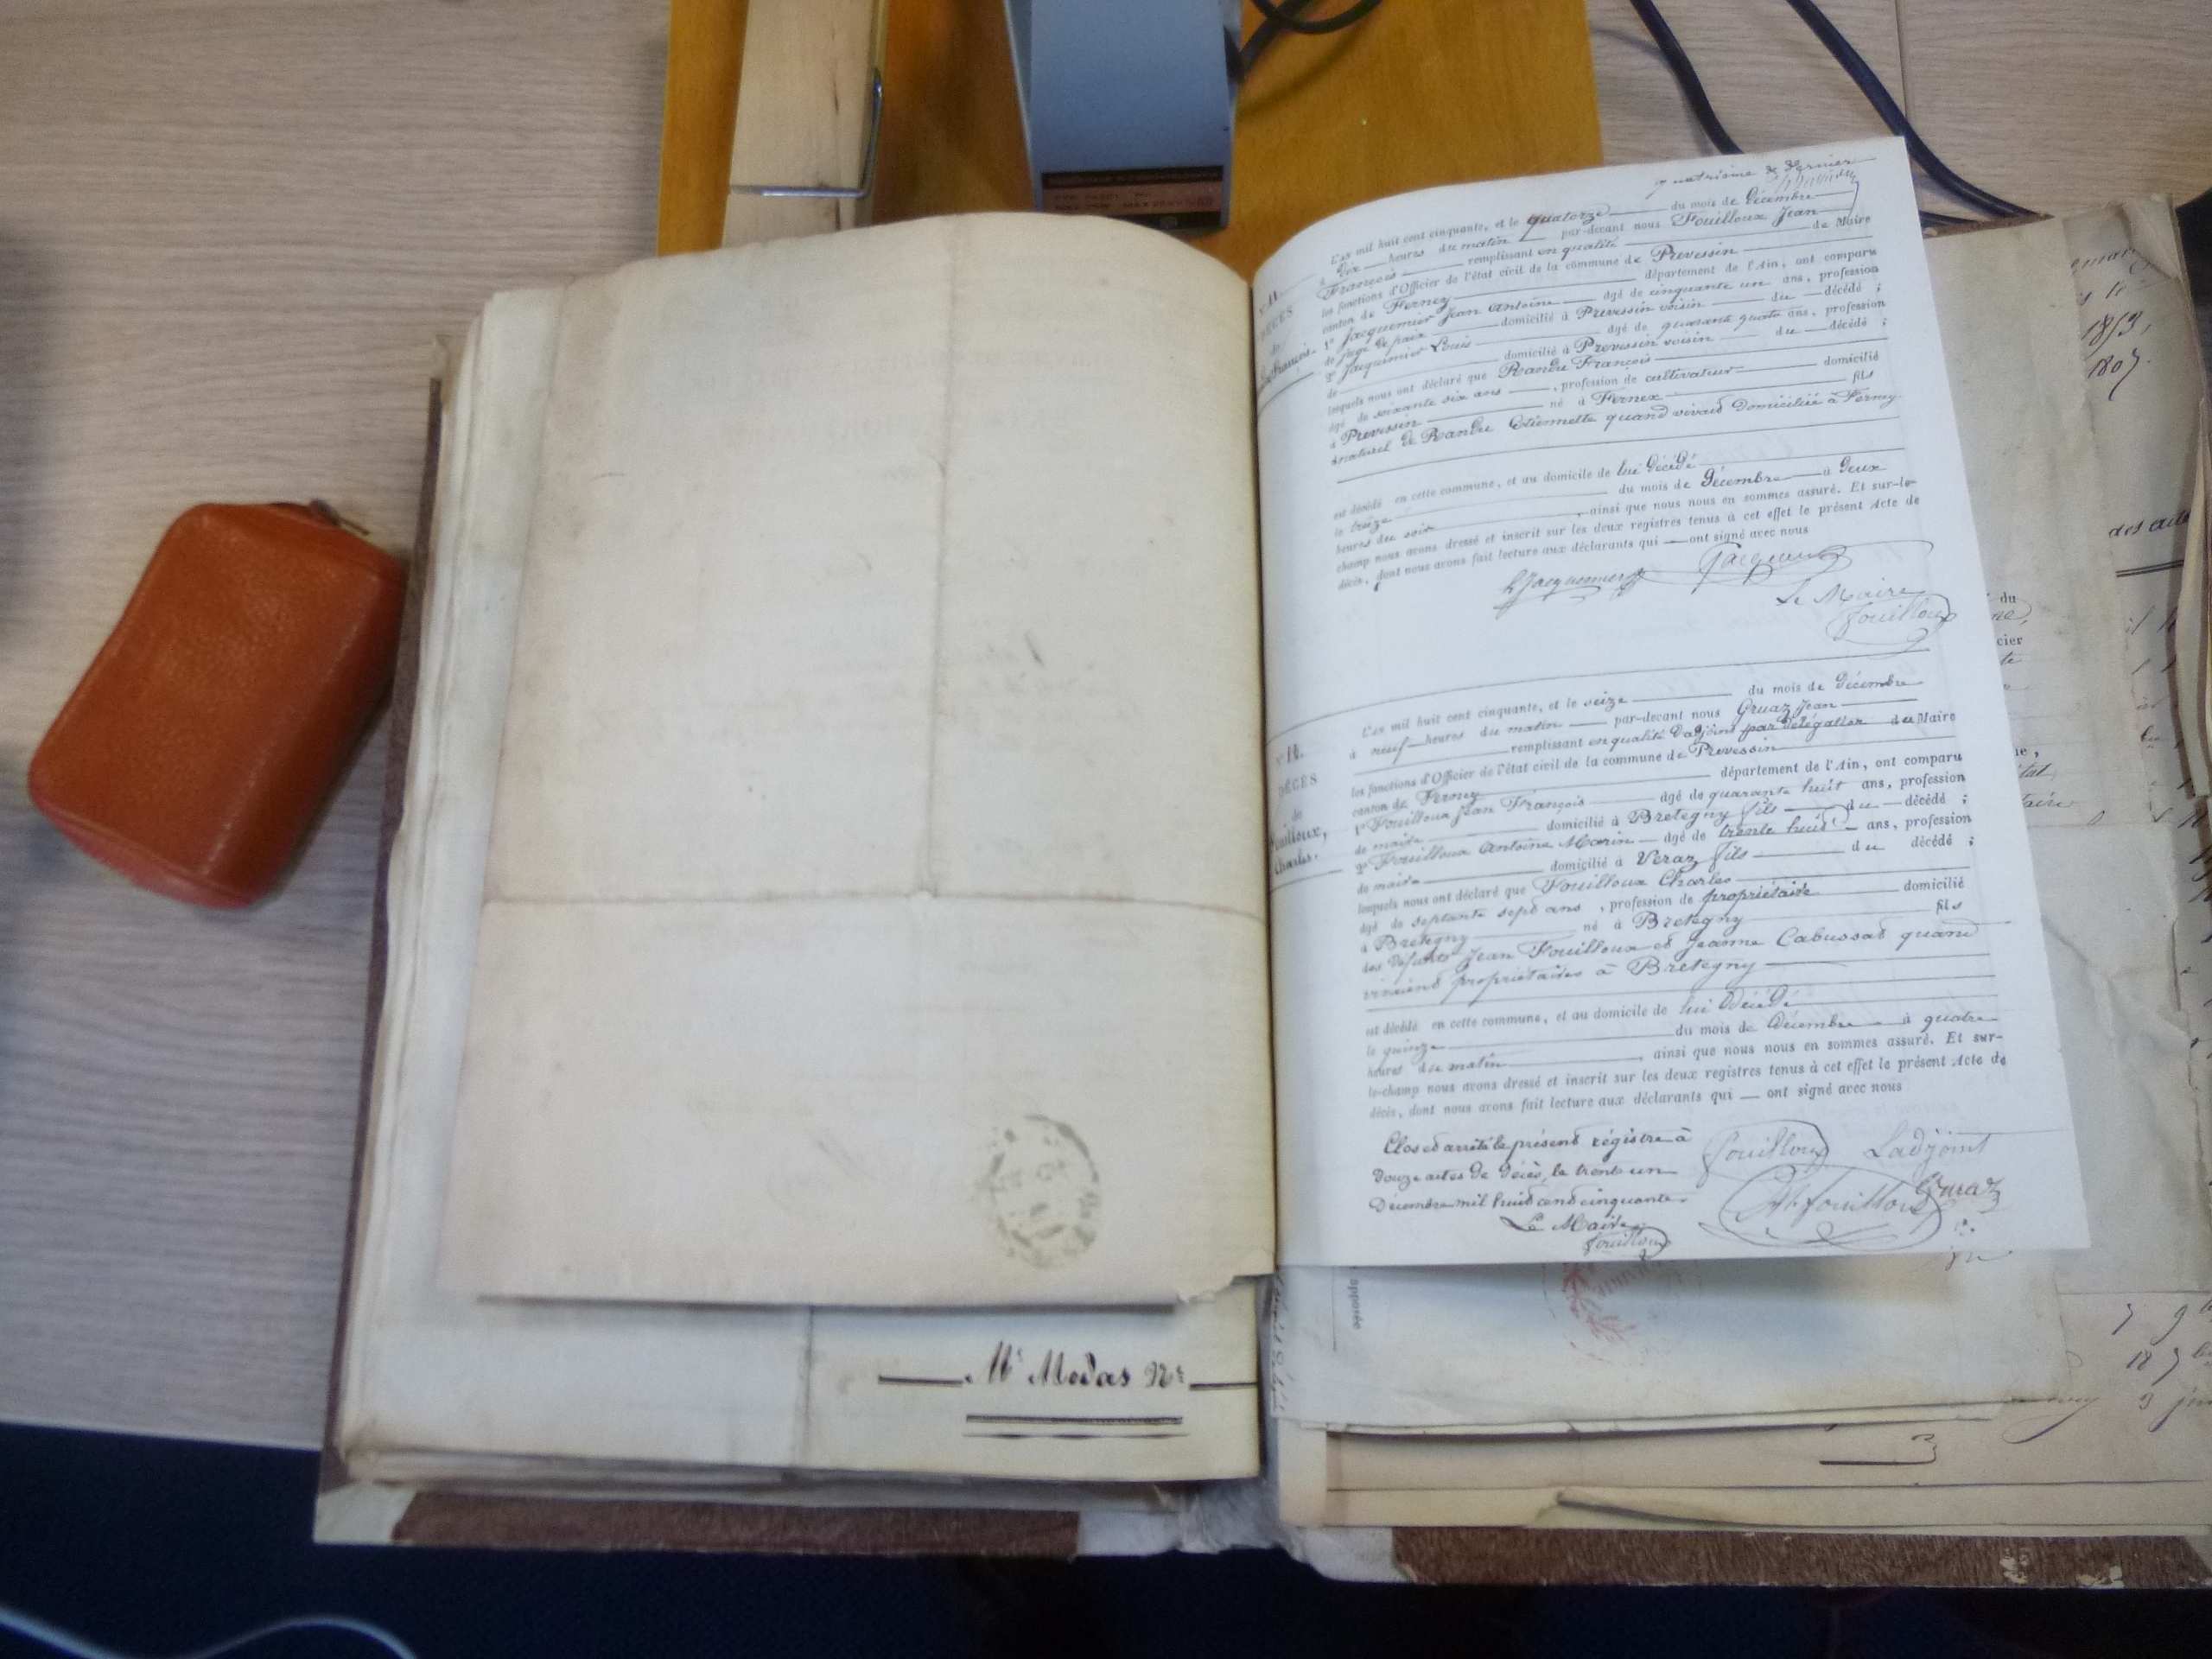 Mr Modas Nre
quatrième & dernier
L'an mil huit cent cinquante, et le quatorze du mois de Décembre
à dix heures du matin par-devant nous Fouilloux Jean
François remplissant en qualité de Maire
les fonctions d'Officier de l'état civil de la commune de Prevessin
canton de Ferney département de l'Ain, ont comparu
1° Jacquemier Jean Antoine âgé de cinquante un ans, profession
de juge de paix domicilié à Prevessin voisin du décédé;
2° Jacquemier Louis âgé de quarante quatre ans, profession
de domicilié à Prevessin voisin du décédé;
lesquels nous ont déclaré que Randu François
âgé de soixante six ans, profession de cultivateur domicilié
à Prevessin né à Fernex fils
naturel de Randu Etiennette quand vivait domiciliée à Ferney.
est décédé en cette commune, et au domicile de lui décédé
le treize du mois de Décembre à deux
heures du soir, ainsi que nous nous en sommes assuré. Et sur-le-
champ nous avons dressé et inscrit sur les deux registres tenus à cet effet le présent Acte de
décès, dont nous avons fait lecture aux déclarants qui ont signé avec nous
Le Maire
Fouilloux
N° 12.
DÉCÈS
de
Fouilloux,
Charles.
L'an mil huit cent cinquante, et le seize du mois de Décembre
à neuf heures du matin par-devant nous Gruaz Jean
remplissant en qualité d'adjoint par délégation du Maire
les fonctions d'Officier de l'état civil de la commune de Prevessin
canton de Ferney département de l'Ain, ont comparu
1° Fouilloux Jean François âgé de quarante huit ans, profession
de maire domicilié à Bretegny fils du décédé;
2° Fouilloux Antoine Marin âgé de trente huit ans, profession
de domicilié à Veraz fils du décédé;
lesquels nous ont déclaré que Fouilloux Charles
âgé de septante sept ans, profession de propriétaire domicilié
à Bretegny né à Bretegny fils
des défunts Jean Fouilloux et Jeanne Cabussat quand
vivaient propriétaires à Bretegny
est décédé en cette commune, et au domicile de lui décédé
le quinze du mois de Décembre à quatre
heures du matin, ainsi que nous nous en sommes assuré. Et sur-
le-champ nous avons dressé et inscrit sur les deux registres tenus à cet effet le présent Acte de
décès, dont nous avons fait lecture aux déclarants qui ont signé avec nous
Clos et arrêté le présent régistre à
Douze actes de décès, le trente un
Décembre mil huit cent cinquante.
Le Maire
Fouilloux
Fouilloux Ladjoint
Fouilloux Gruaz